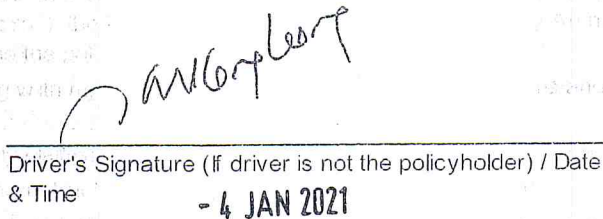 Driver's Signature (If driver is not the policyholder) / Date
& Time
- 4 JAN 2021